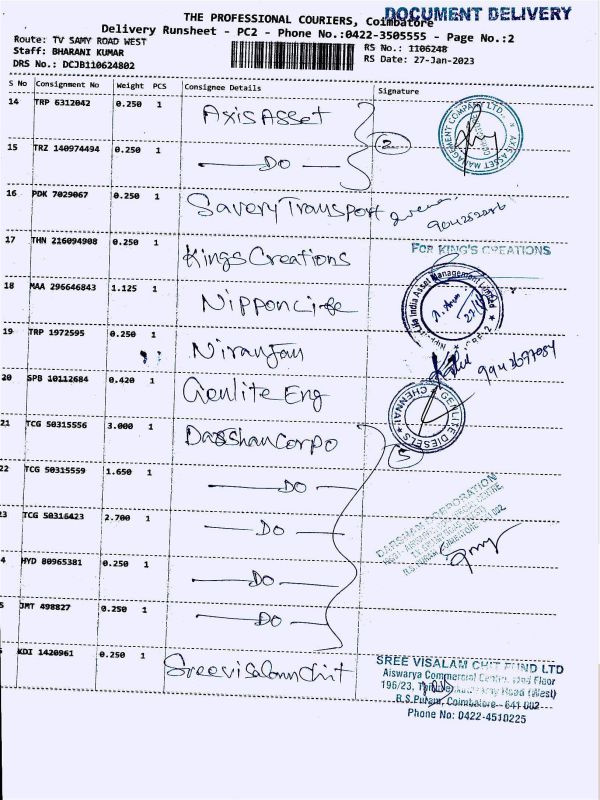 DOCUMENT DELIVERY
THE PROFESSIONAL COURIERS, Coimbatore
Delivery Runsheet - PC2 - Phone No.:0422-3505555 - Page No.:2
Route: TV SAMY ROAD WEST
RS No.: 1106248
Staff: BHARANI KUMAR
RS Date: 27-Jan-2023
DRS No.: DCJB110624802
S No Consignment No Weight PCS Consignee Details Signature
14 TRP 6312042 0.250 1 Axis Asset
AXIS ASSET MANAGEMENT COMPANY LTD.
15 TRZ 140974494 0.250 1 DO 2
16 PDK 7029067 0.250 1 Savery Transport
17 THN 216094908 0.250 1 Kings Creations
FOR KING'S CREATIONS
18 MAA 296646843 1.125 1 Nippon Life
Life India Asset Management Limited
19 TRP 1972595 0.250 1 Niranjan
20 SPB 10112684 0.420 1 Genlite Eng
GENLITE DIESELS CHENNAI
21 TCG 50315556 3.000 1 Darshan Corpo 5
22 TCG 50315559 1.650 1 DO
DARSHAN CORPORATION
3 TCG 50316423 2.700 1 DO
4 HYD 80965381 0.250 1 DO
5 JMT 498827 0.250 1 DO
KDI 1420961 0.250 1 Sree visalam Chit
SREE VISALAM CHIT FUND LTD
Aiswarya Commercial Centre, Floor
196/23, Road (West)
R.S.Puram, Coimbatore - 641 002
Phone No: 0422-4510225